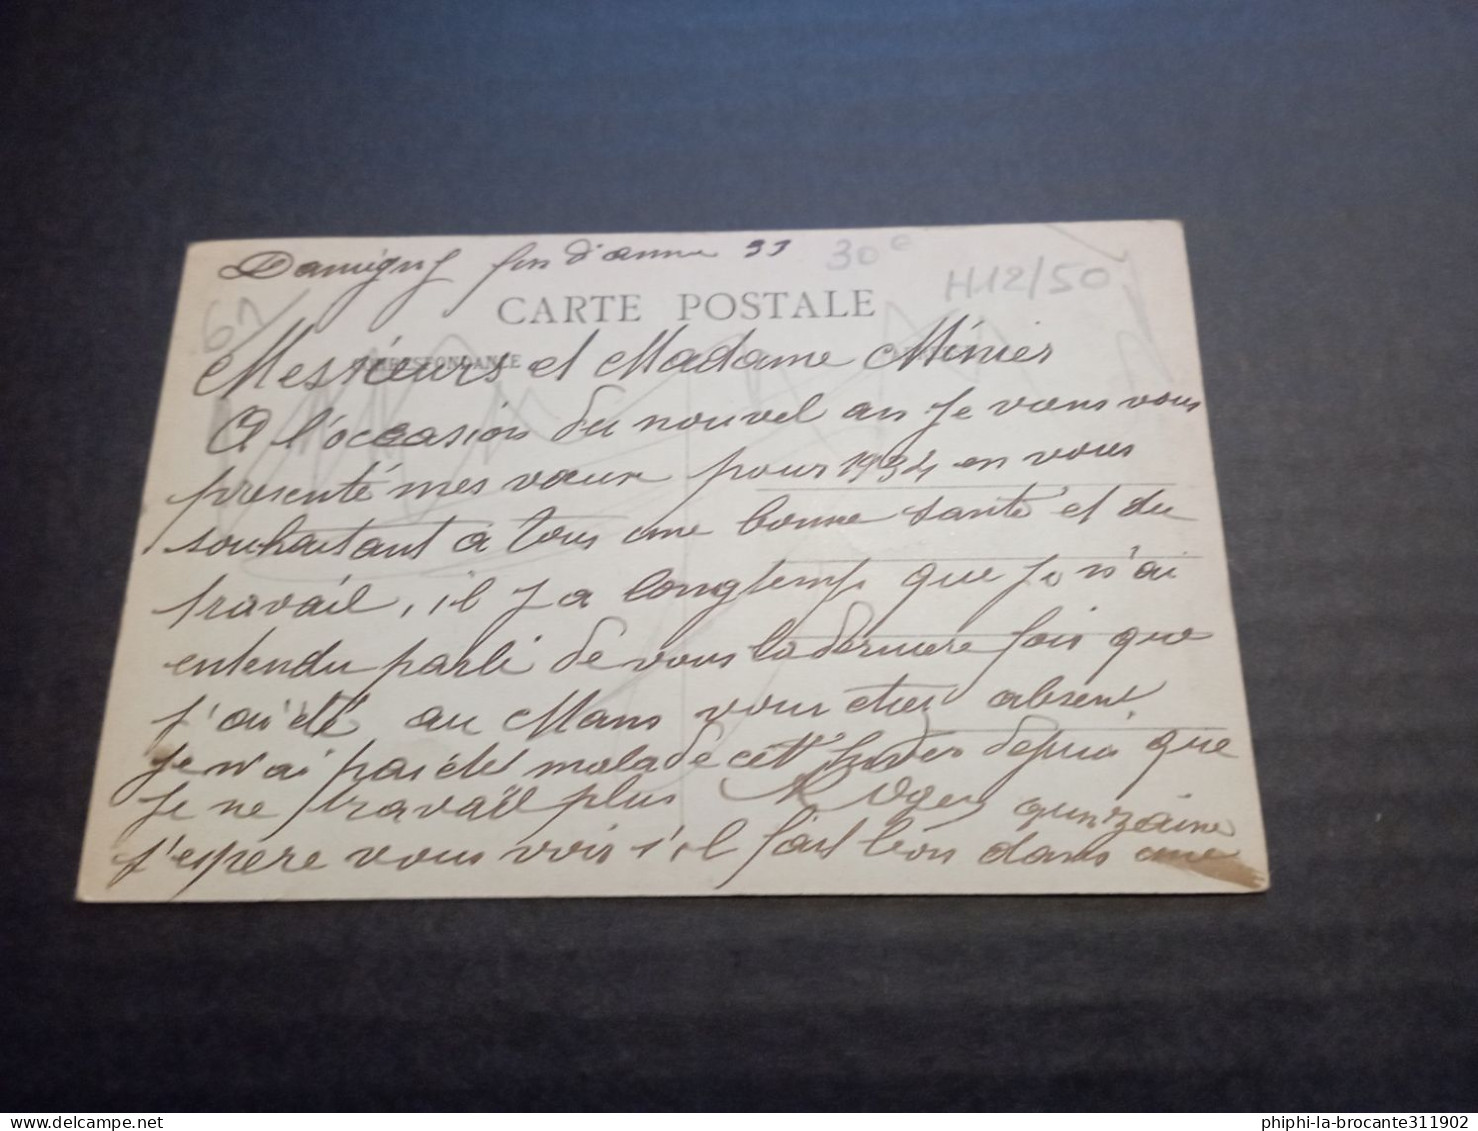 Damigny fin d'anne 33 30e
H12/50
CARTE POSTALE
61
CORRESPONDANCE
Messieurs et Madame Minier
A l'occasion du nouvel an je vous vous
presenté mes voeux pour 1934 en vous
souhaitant a tous une bonne santé et du
travail, il y a longtemps que je n'ai
entendu parlé de vous la derniere fois que
j'ai été au Mans vous etiez absent
je n'ai pas été malade cett depuis que
je ne travail plus Roger quinzaine
j'espere vous voir s'il fait bon dans une
phiphi-la-brocante311902